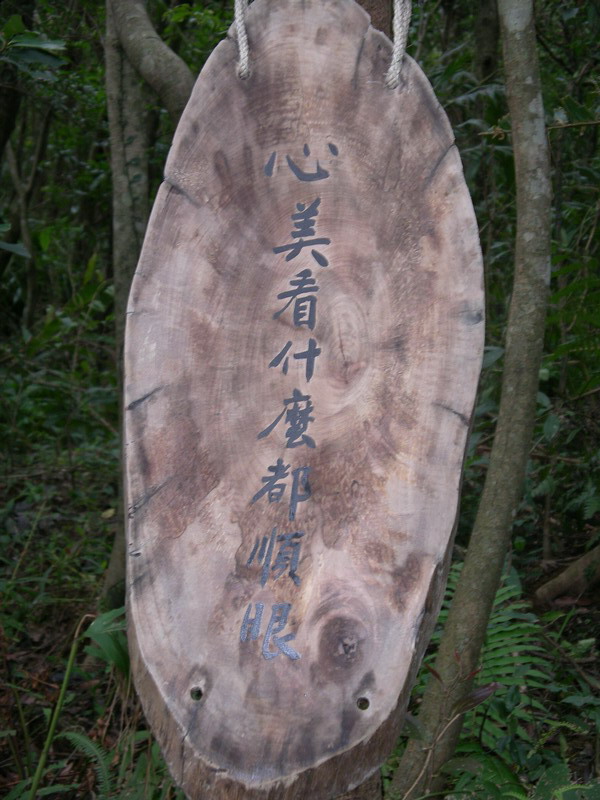 心美看什麼都順眼